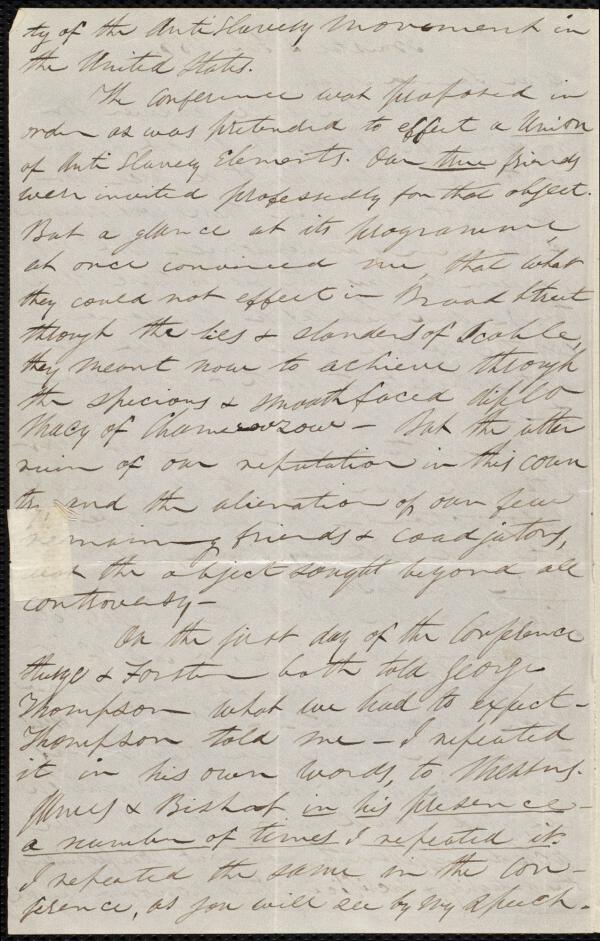 ty of the Anti Slavery movement in
the United States.
The Conference was proposed in
order as was pretended to effect a Union
of Anti Slavery Elements. Our true friends
were invited professedly for that object.
But a glance at its programme,
at once convinced me, that what
they could not effect in Broad Street
through the lies & slanders of Scoble,
they meant now to achieve through
the specious & smooth faced diplo
macy of Chamerovzow - But the utter
ruin of our reputation in this coun
try and the alienation of our few
remaining friends & coadjutors,
was the object sought beyond all
controversy -
On the first day of the Conference
Sturge & Forster both told George
Thompson what we had to expect -
Thompson told me - I repeated
it in his own words, to Messrs.
James & Bishop in his presence -
a number of times I repeated it.
I repeated the same in the Con-
ference, as you will see by my speech.